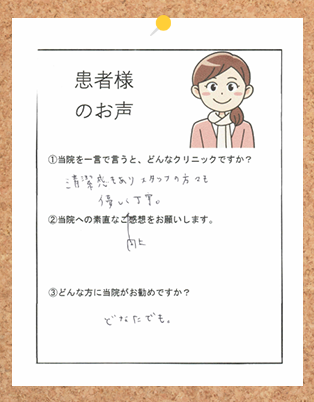 患者様
のお声
①当院を一言で言うと、どんなクリニックですか？
清潔感もあり スタッフの方々も
優しく丁寧。
②当院への素直なご感想をお願いします。
同上
③どんな方に当院がお勧めですか？
どなたでも。